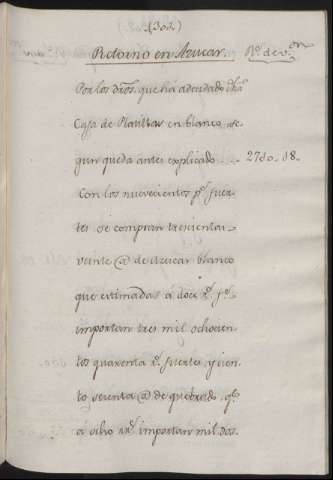 (302)
Retorno en Azucar. Rs. de v.on
Por los dros. que ha adeudado dha
Caja de Platillas en blanco se-
gun queda antes explicado ..... 2780..18..
Con los nuevecientos ps. fuer-
tes se compran trecientas
veinte @ de Azucar blanco
que estimadas á doce rs. fs.
importan tres mil ochocien-
tos quarenta rs. fuertes y cien-
to sesenta @ de quebrado, qe.
á ocho rrs. importan mil dos-